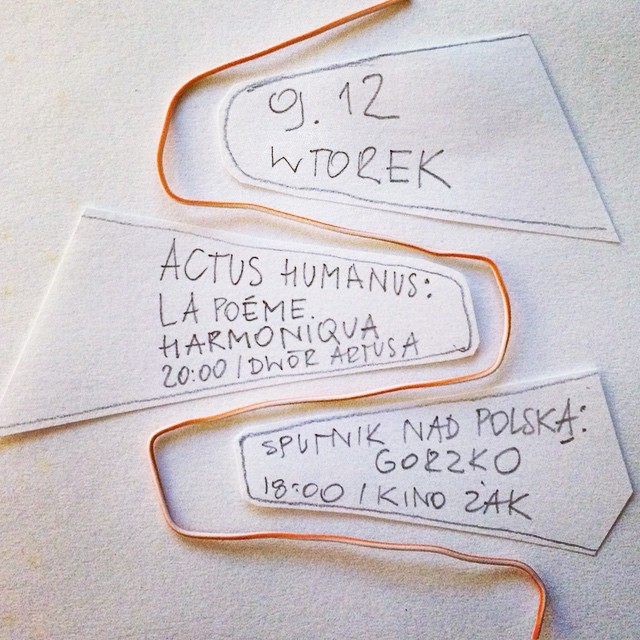 09.12
WTOREK
ACTUS HUMANUS:
LA POÉME.
HARMONIQUA
20:00 / DWÓR ARTUSA
SPUTNIK NAD POLSKĄ:
GORZKO
18:00 / KINO ŻAK